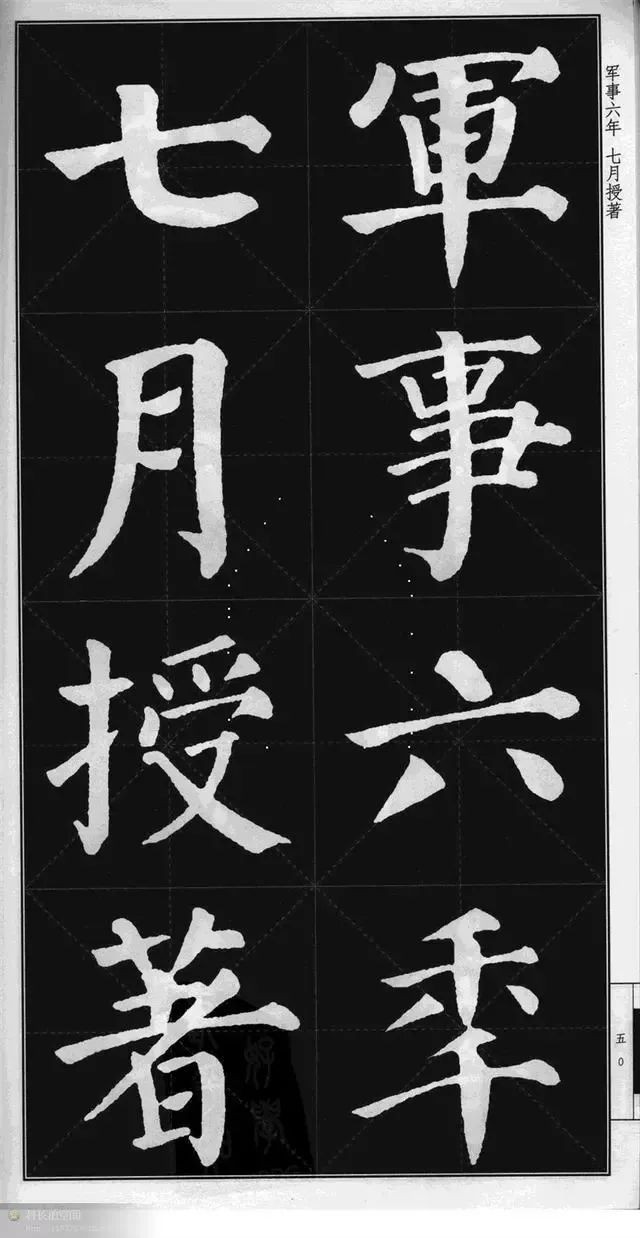 軍事六秊
七月授著
军事六年 七月授著
五0